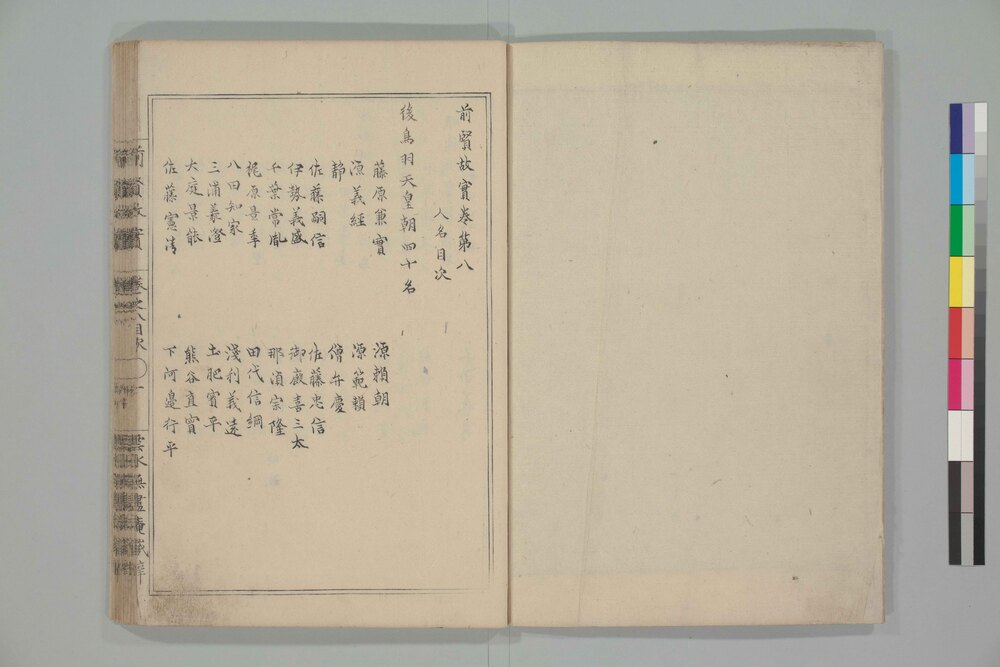 前賢故實卷第八
人名目次
後鳥羽天皇朝四十名
藤原兼實
源賴朝
源義經
源範賴
静
僧弁慶
佐藤嗣信
佐藤忠信
伊勢義盛
御廐喜三太
千葉常胤
那須宗隆
梶原景季
田代信綱
八田知家
淺利義遠
三浦義澄
土肥實平
大庭景能
熊谷直實
佐藤憲清
下河邉行平
前賢故實
卷之八目次
一
雲水無盡庵藏梓